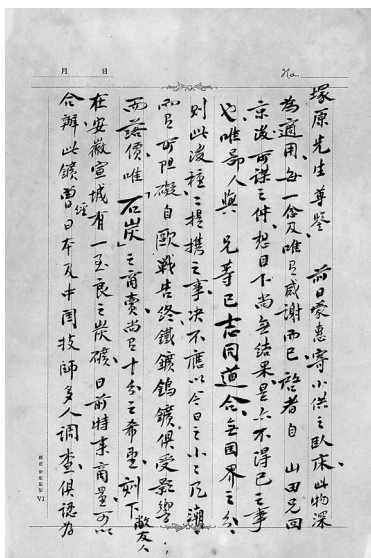 月 日
No.
塚原先生尊鉴 前日蒙惠寄小供之臥床此物深
為適用每一念及唯有感謝而已啓者自 山田兄回
京後所謀之件想目下尚無結果是亦不得已之事
也唯鄙人與 兄等已志同道合無國界之分
則此後種々提携之事决不應以今日之小々風潮
而有所阻礙自歐戰告終鐵鑛鎢鑛俱受影響
而落價唯「石炭」之商賣尚有十分之希望刻下敝友人
在安徽宣城有一至良之炭礦日前特來商量可以
合辦此鑛曾經日本及中国技師多人調查俱認為
VI